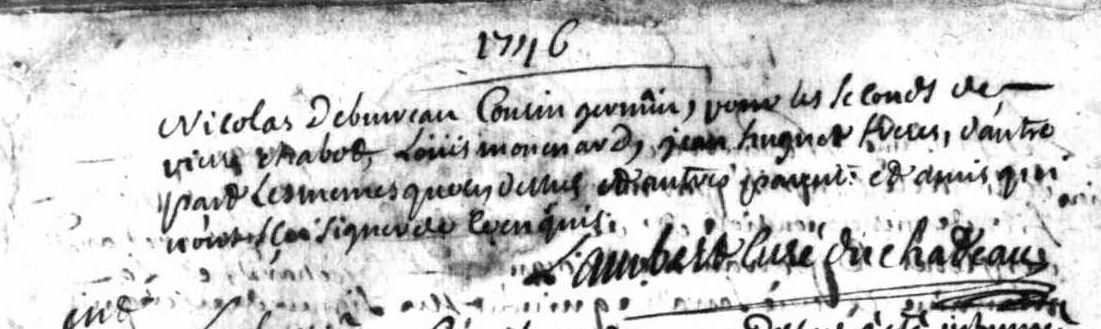 1746
Nicolas Debureau Cousin germain, pour les seconds de
pierre chabot, Louis monmard, jean huguet freres, d'autre
part Les memes que cy dessus et autres parents et amis qui
n'ont sçu signer de ce enquis.
Lambert Curé du chateau